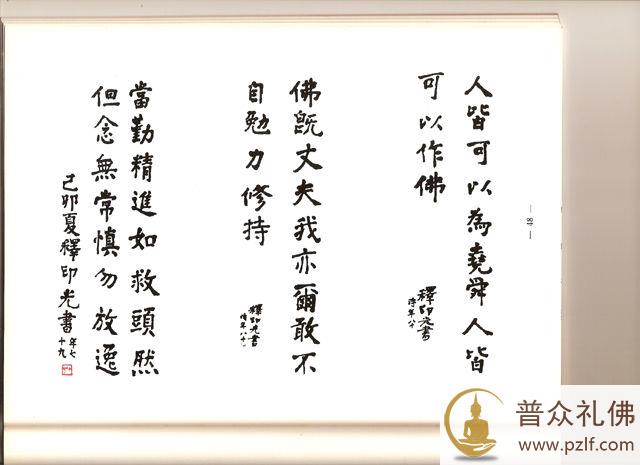 人皆可以為堯舜人皆
可以作佛
釋印光書
時年八十
佛既丈夫我亦爾敢不
自勉力修持
釋印光書
時年八十
當勤精進如救頭然
但念無常慎勿放逸
己卯夏釋印光書
年七
十九
— 48 —
普众礼佛
www.pzlf.com